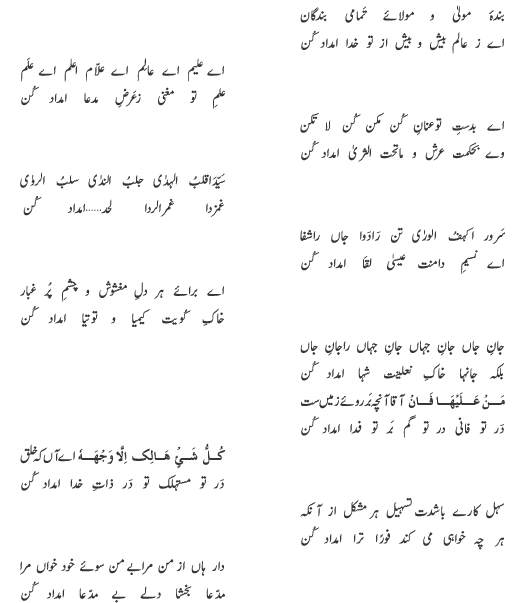 بندۂ مولیٰ و مولائے تمامی بندگان
اے ز عالم بیش و بیش از تو خدا امداد کُن
اے علیم اے عالِم اے علّام اعلم اے علَم
علمِ تو مغنی زعَرضِ مدعا امداد کُن
اے بدستِ تو عنانِ کُن مکن کُن لا تکن
وے بحکمت عرش و ماتحت الثریٰ امداد کُن
سَیِّدَا قلبُ الہدٰی جلبُ الندٰی سلبُ الردٰی
غمزدا غمر الردا لحد......امداد کُن
سَرور اکہفُ الورٰی تن رَا دَوا جاں راشفا
اے نسیمِ دامنت عیسیٰ لقا امداد کُن
اے برائے ہر دلِ مغشوش و چشمِ پُر غبار
خاکِ کُویت کیمیا و توتیا امداد کُن
جانِ جاں جانِ جہاں جانِ جہاں راجانِ جاں
بلکہ جانہا خاکِ نعلینت شہا امداد کُن
مَـنْ عَـلَـیْهَـا فَـانْ آقا آنچہ بَر روئے زمیں ست
دَر تو فانی در تو گم بَر تو فدا امداد کُن
کُـلُّ شَـیْءٍ هَـالِـک اِلَّا وَجْهَـهٗ اے آں کہ خلق
دَر تو مستہلک تو دَر ذاتِ خدا امداد کُن
سہل کارے باشدت تسہیل ہر مشکل از آنکہ
ہر چہ خواہی می کند فورًا ترا امداد کُن
دار ہاں از من مرا بے من سوئے خود خواں مرا
مدّعا بخشا دلے بے مدّعا امداد کُن